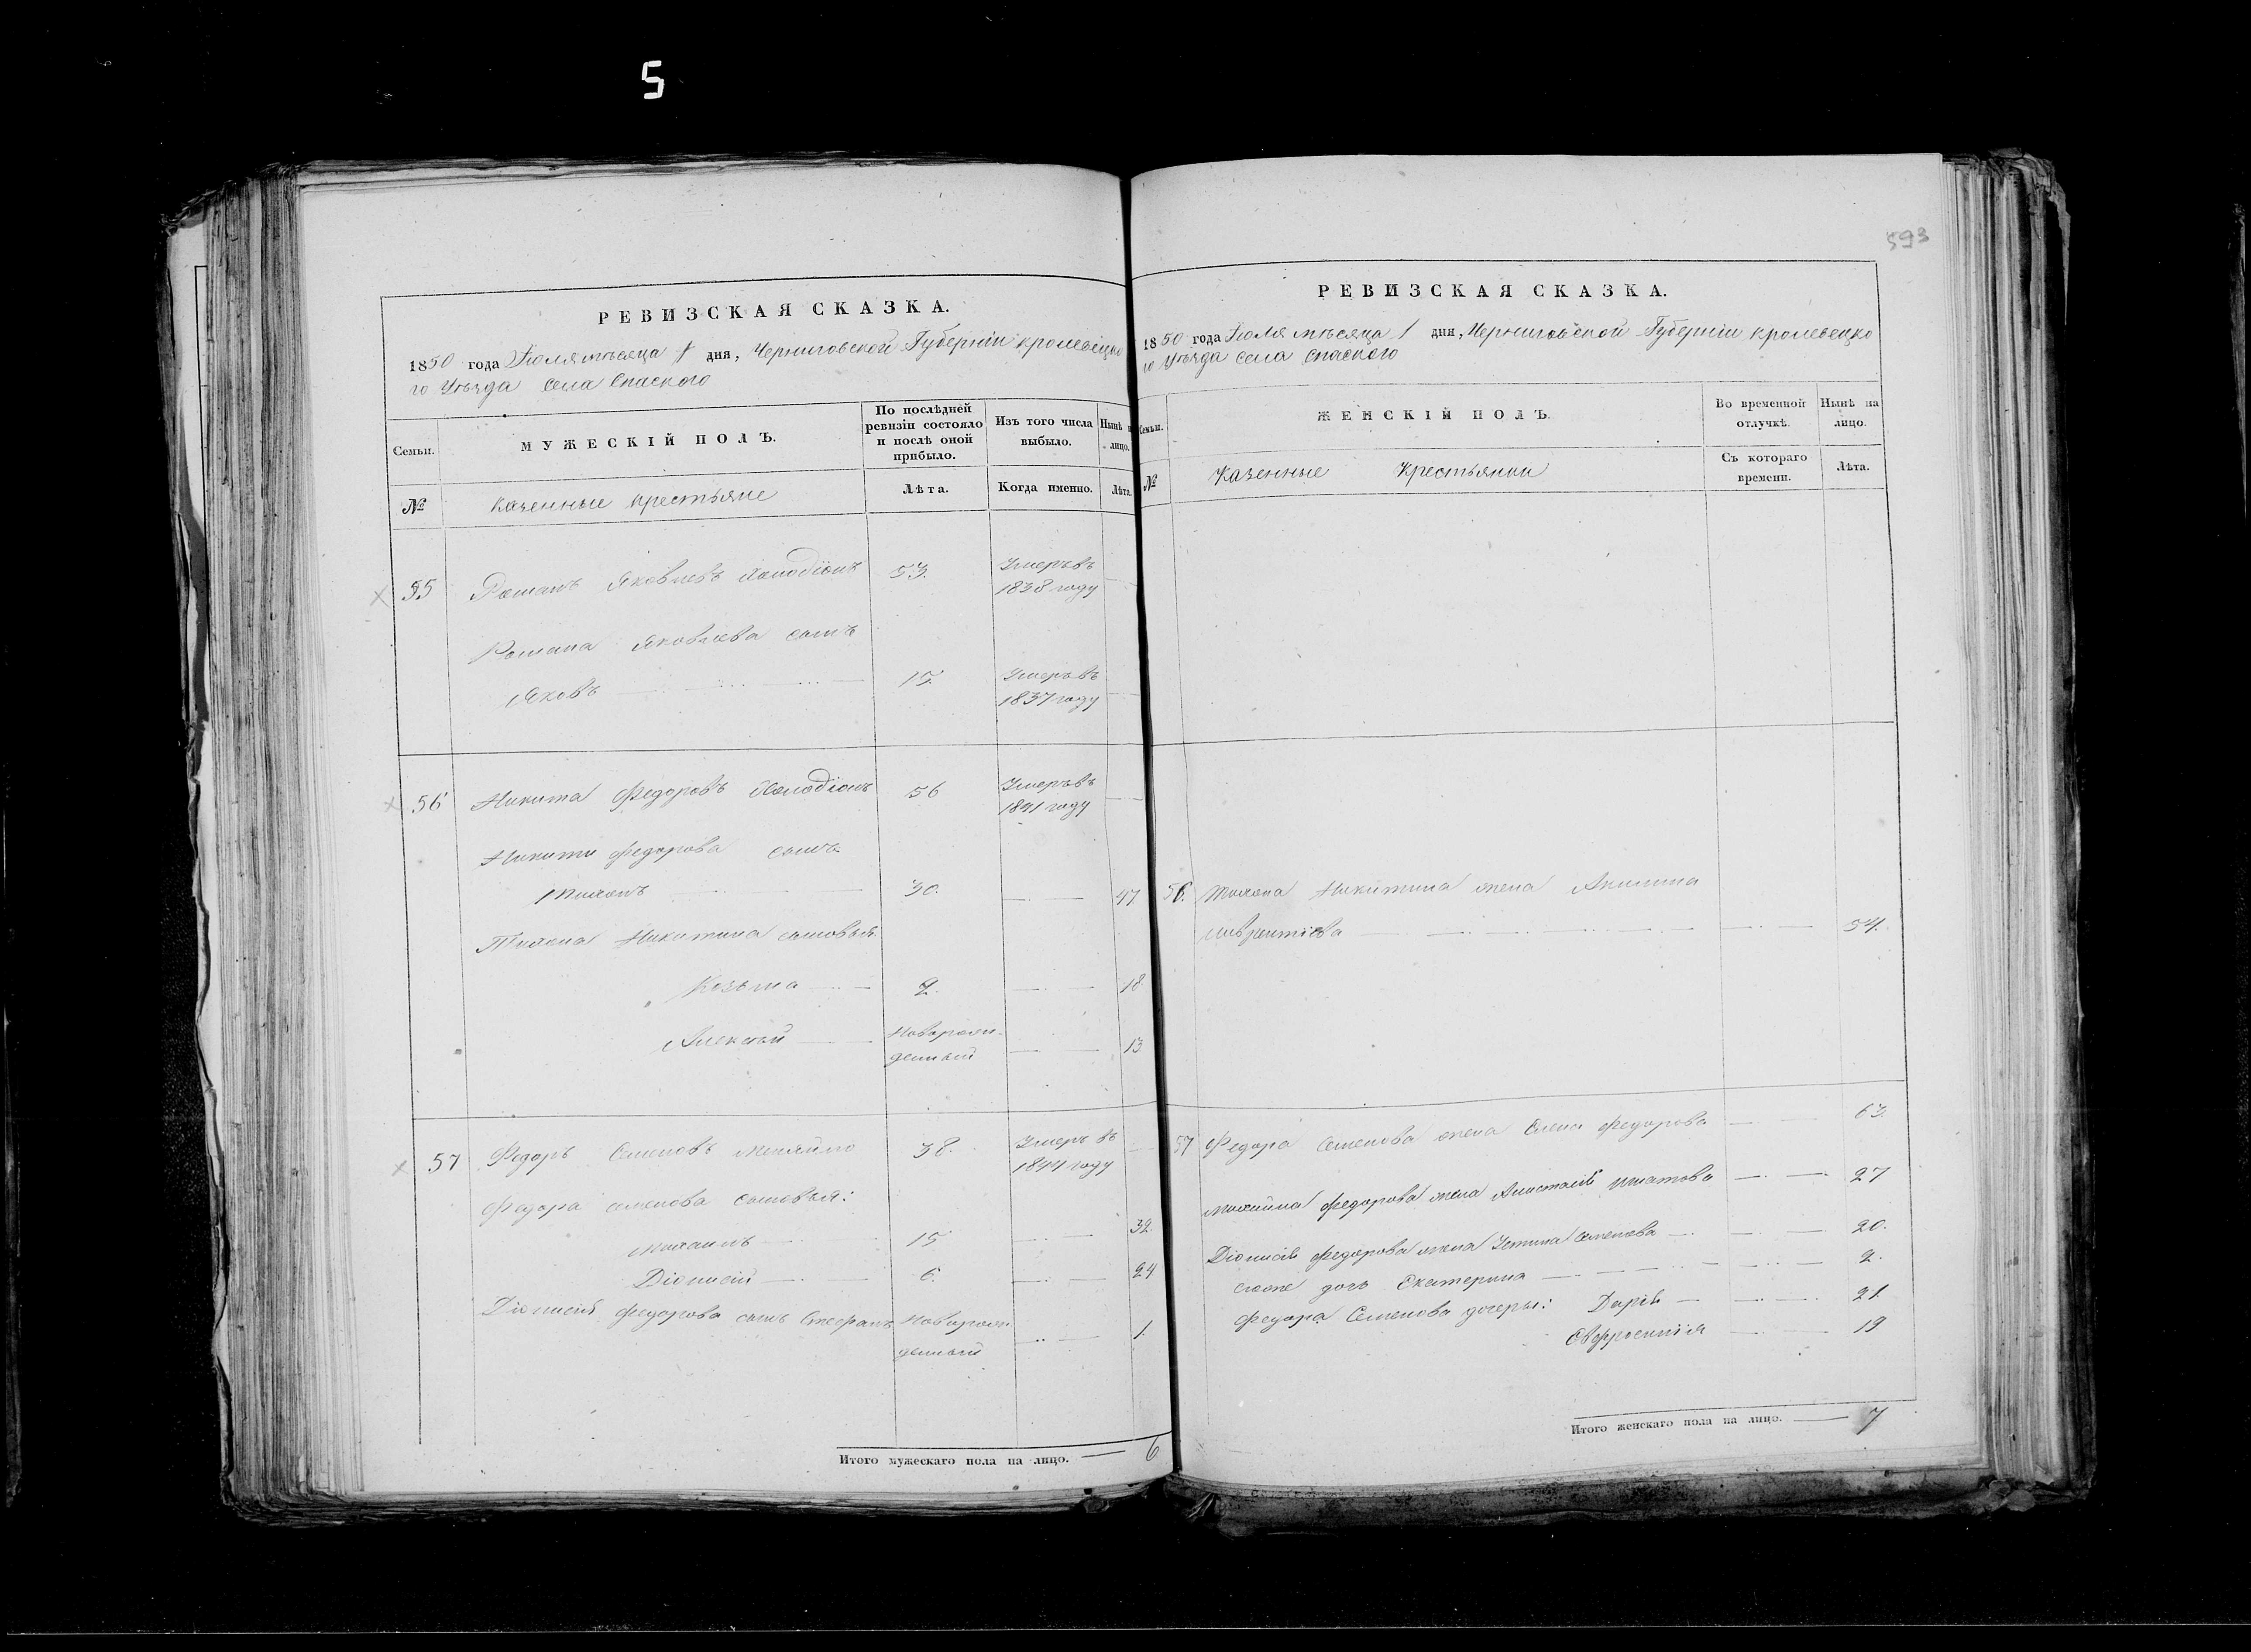 5
593
РЕВИЗСКАЯ СКАЗКА.
1850 года Іюля мѣсяца 1 дня, Черниговской Губерніи кролевецко
го Уѣзда села Спаского
Семьи.
МУЖЕСКІЙ ПОЛЪ.
По послѣдней ревизіи состояло и послѣ оной прибыло.
Изъ того числа выбыло.
Нынѣ
лицо.
№
Казенные крестьяне
Лѣта.
Когда именно.
Лѣта.
55 Романъ Яковлевъ 53. Умеръ въ
1838 году
Романа Яковлева сынъ
Яковъ 15. Умеръ въ
1837 году
56 Никита Федоровъ 56 Умеръ въ
1841 году
Никиты Федорова сынъ
Тихонъ 30. 47
Тихона Никитина сыновья
Козьма 2. 18
Алексѣй Новорож-
денный 13
57 Федоръ Семеновъ 38. Умеръ въ
1844 году
Федора Семенова сыновья:
Михаилъ 15 32
Діонисій 6. 24
Діонисія Федорова сынъ Стефанъ Новорож
денный 1.
Итого мужескаго пола на лицо. 6
РЕВИЗСКАЯ СКАЗКА.
1850 года Іюля мѣсяца 1 дня, Черниговской Губерніи кролевецко
го Уѣзда села Спаского
Семьи.
ЖЕНСКІЙ ПОЛЪ.
Во временной отлучкѣ.
Нынѣ на лицо.
№
Казенные Крестьянки
Съ котораго времени.
Лѣта.
56. Тихона Никитина жена Акилина
Лаврентіева 54.
57 Федора Семенова жена Елена Федорова 63.
Михайла Федорова жена Анастасія Игнатова 27
Діонисія Федорова жена Устина Семенова 20.
его же дочь Екатерина 2.
Федора Семенова дочери: Дарія 21
Евфросинія 19
Итого женскаго пола на лицо. 7